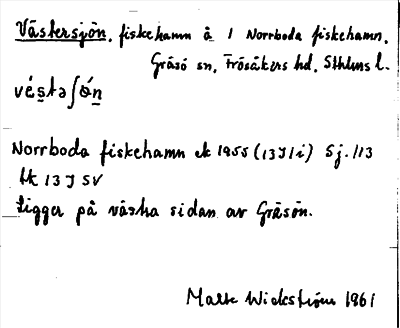 Västersjön, fiskehamn å 1 Norrboda fiskehamn,
Gräsö sn, Frösåkers hd, Sthlms l.
véstəʃǿn
Norrboda fiskehamn ek 1955 (13J1i) Sj. 113
tk 13 J SV
Ligger på västra sidan av Gräsön.
Malte Wickström 1961